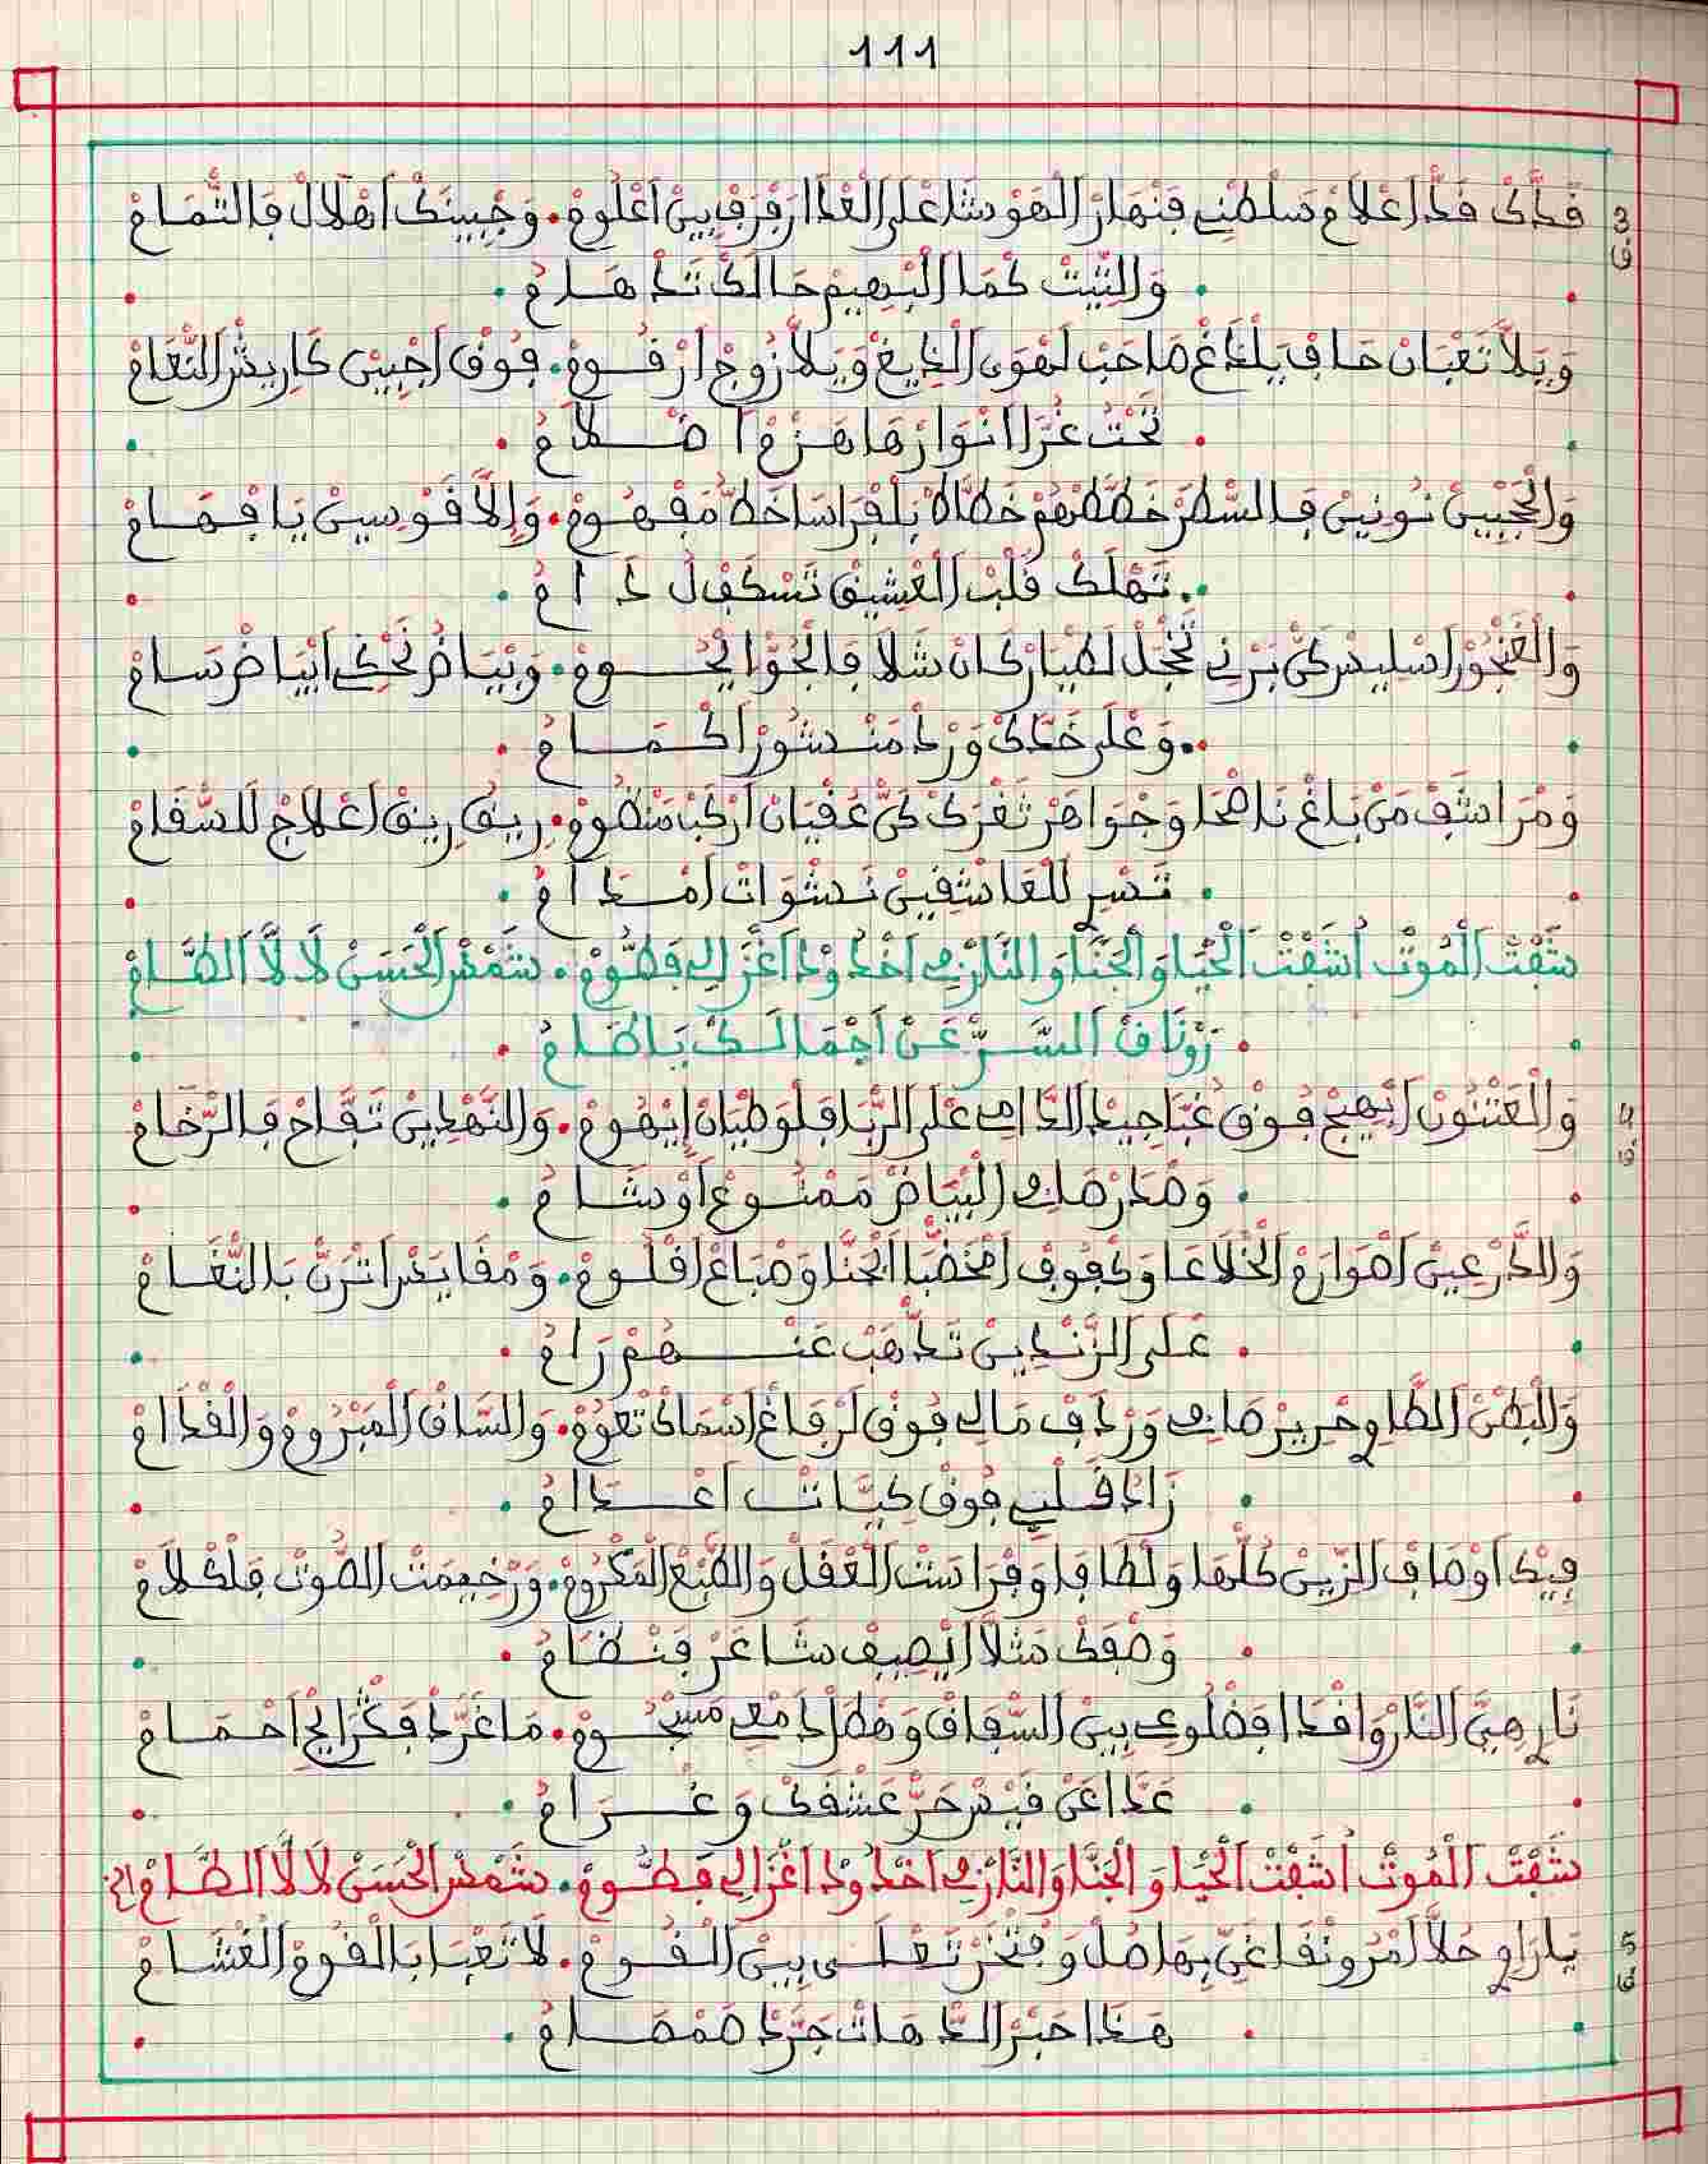 111
3 قَدَّكْ قَدّْ اَعْلَامْ سَلْطْنِي فَنْهَارْ اَلْهَوْشَا عْلَى الْعْدَا رَفْرَفْ بِينْ اَعْلُومْ. وَجْبِينَكْ اَهْلَالْ فَالتّْمَامْ
ف
. وَالتِّيتْ كْمَا اَلْبْهِيمْ حَالَكْ تَدْهَامْ .
وَيَلَّا تَعْبَانْ حَافْ يَلْدَغْ صَاحَبْ لَهْوَى اَلْدِيغْ وَيَلَّا زُوجْ اَرْقُومْ. فُوقْ اَجْبِينْ كَا رِيشْ النّْعَامْ
. تَحْتْ غُرَّا اَنْوَارْهَا هَزْمْ اَضْلَامْ .
وَالْحَجْبِينْ نُونِينْ فَالسّْطَرْ خَطَّطْهُمْ خَطَّاطْ بَلْفْرَاسَا خَطّْ مَفْهُومْ. وَإِلَّا قَوْسِينْ يَا فْهَامْ
. تَهْلَكْ قَلْبْ اَلْعْشِيقْ تَسْكَفْ لَدْ اَمْ .
وَالْغَنْجُورْ اَسْلِيسْ كَنّْ بَرْنِي تَخْجَلْ لَطْيَارْ كَانْ شَلَّا فَالْجُوّْ اِيْحُومْ. وَبْيَاضُ تَحْكِي اَبْيَاضْ سَامْ
. وَعْلَى خَدَّكْ وَرْدْ مَنْشُورْ اَكْمَامْ .
وَمْرَاشَفْ مَنْ بَاغْ نَاضْحَا وَجْوَاهَرْ تَغْرَكْ كَنّْ عَقْيَانْ اَرْكَبْ مَنْظُومْ. رِيقُ رِيقْ اَعْلَاجْ لَلسّْقَامْ
. تَسْرِ لَلْعَاشْقِينْ نَشْوَاتْ اَمْدَامْ .
شَفْتْ اَلْمُوتْ اُشَفْتْ اَلْحْيَا وَالْجَنَّا وَالنَّارْ فِي اَخْدُودْ اَغْزَالِي فَطُّومْ. شَمْسْ الْحَسَنْ لَالَّا اَلطَّامْ
. رُونَاقْ اَلسَّرّْ عَنْ اَجْمَالَكْ يَا طَامْ .
4 وَالْعَتْنُونْ اَبْهِيجْ فُوقْ غَبَّا جِيدْ اَلدَّامِي عْلَى الرّْبَا قَلُّو طْبَّانْ اِيْهُومْ. وَالنَّهْدِينْ تَفَّاحْ فَالرّْخَامْ
ف
. وَصْدَرْ صَافِي اَلْبْيَاضْ مَمْنُوعْ اَوْشَامْ .
وَالدَّرْعِينْ اَصْوَارَمْ اَلْخْلَاعَا وَكْفُوفْ اَمْخَضّْبَا اَلْحَنَّا وَصْبَاعْ اَقْلُومْ. وَمْقَايَسْ اَتْرَنّْ بَالنّْغَامْ
. عَلَى الزَّنْدِينْ تَدْهَبْ عَنْهُمْ رَامْ .
وَالْبْطَنْ اَلطَّاوِي حْرِيرْ صَافِي وَرْدَافْ مَالِي فُوقْ لَرْفَاغْ اَسْمَاكْ تْعُومْ. وَالسَّاقْ اَلْمَبْرُومْ وَالْقْدَامْ
. زَادُ قَلْبِي فُوقْ كِيَّاتْ اَعْدَامْ .
فِيكْ اَوْصَافْ الزِّينْ كُلّْهَا وَلْطَافَا وَفْرَاسَتْ اَلْعْقَلْ وَالطَّبْعْ اَلْمَكْرُومْ. وَرْخِيمَتْ الصُّوتْ فَلْكْلَامْ
. وَصْفَكْ شَلَّا اَيْصِيفْ شَاعَرْ فَنْضَامْ .
نَارِي هِيَّ اَلنَّارْ وَاقْدَا فَضْلُوعِي بِينْ اَلسّْفَاقْ وَهْطَلْ دَمْعِي مَسْجُومْ. مَا غَرَّدْ فَكْرَايْجْ اَحْمَامْ
. عَدَّا عَنْ قَيْسْ حَرّْ عَشْقَكْ وَغْرَامْ .
شَفْتْ اَلْمُوتْ اُشَفْتْ اَلْحْيَا وَالْجَنَّا وَالنَّارْ فِي اَخْدُودْ اَغْزَالِي فَطُّومْ. شَمْسْ الْحَسَنْ لَالَّا اَلطَّامْ الخ
5 يَا رَاوِي حُلَّا اَمْرُونْقَا غَنِّ بِهَا صُلْ وَفْتْخَرْ تَعْلَى بِينْ اَلْقُومْ. لَا تَعْبَا بَالْقُومْ اَلْغْشَامْ
ف
. هَذَا حَبْرْ اَلدّْهَاتْ جَرَّدْ صَمْصَامْ .